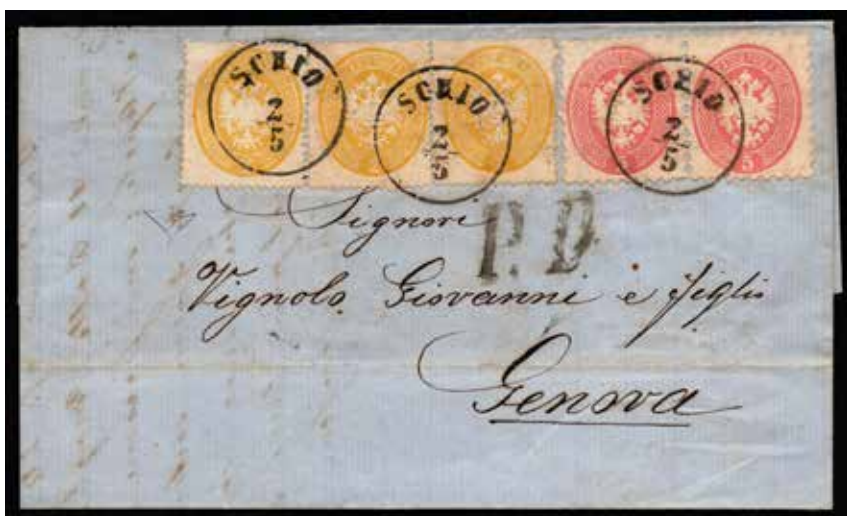 SCHIO
2/5
SCHIO
2/5
SCHIO
2/5
P. D.
Signori
Vignolo Giovanni e figlio
Genova